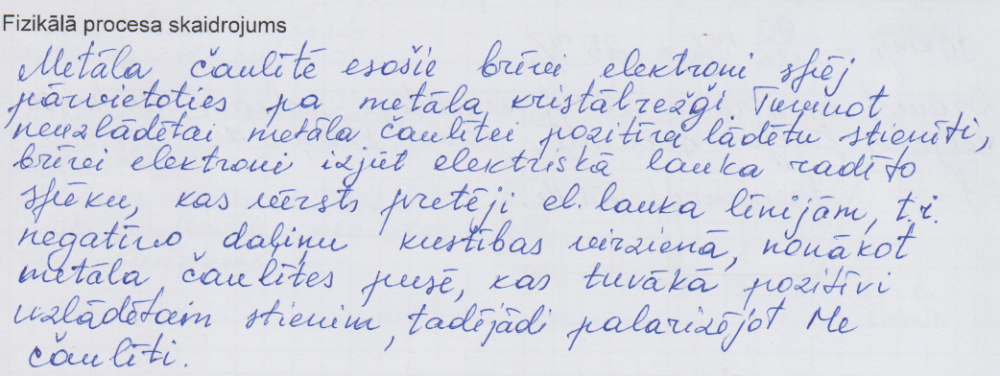 Fizikālā procesa skaidrojums
Metāla čaulītē esošie brīvi elektroni spēj
pārvietoties pa metāla kristālrežģi. Tuvinot
neuzlādētai metāla čaulītei pozitīvi lādētu stienīti,
brīvi elektroni izjūt elektriskā lauka radīto
spēku, kas vērsts pretēji el. lauka līnijām, t.i.
negatīvo daļiņu kustības virzienā, nonākot
metāla čaulītes pusē, kas tuvākā pozitīvi
uzlādētam stienim, tadējādi palarizējot Me
čaulīti.